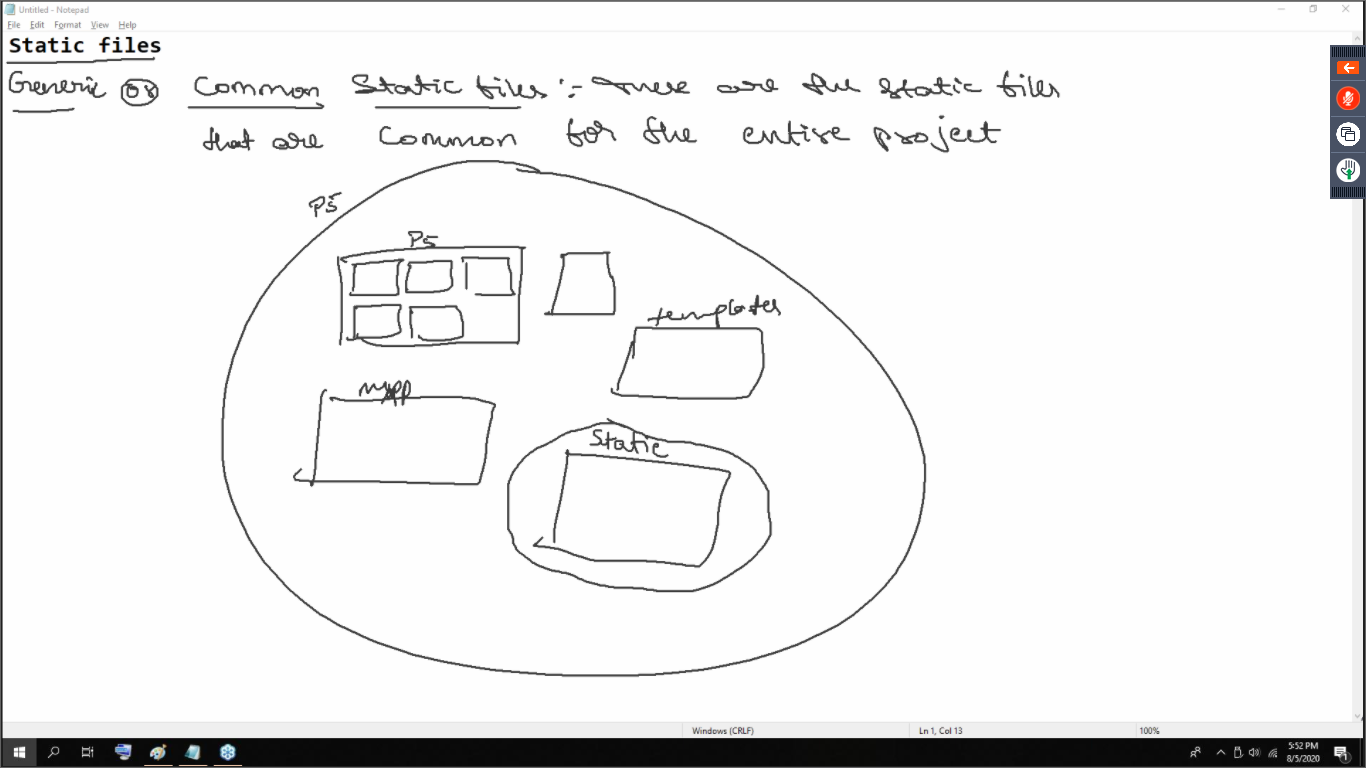 Untitled - Notepad
File Edit Format View Help
Static files
Generic or Common Static files :- These are the static files
that are Common for the entire project
P5
P5
templates
myapp
Static
Windows (CRLF) Ln 1, Col 13 100%
5:52 PM
8/5/2020
1